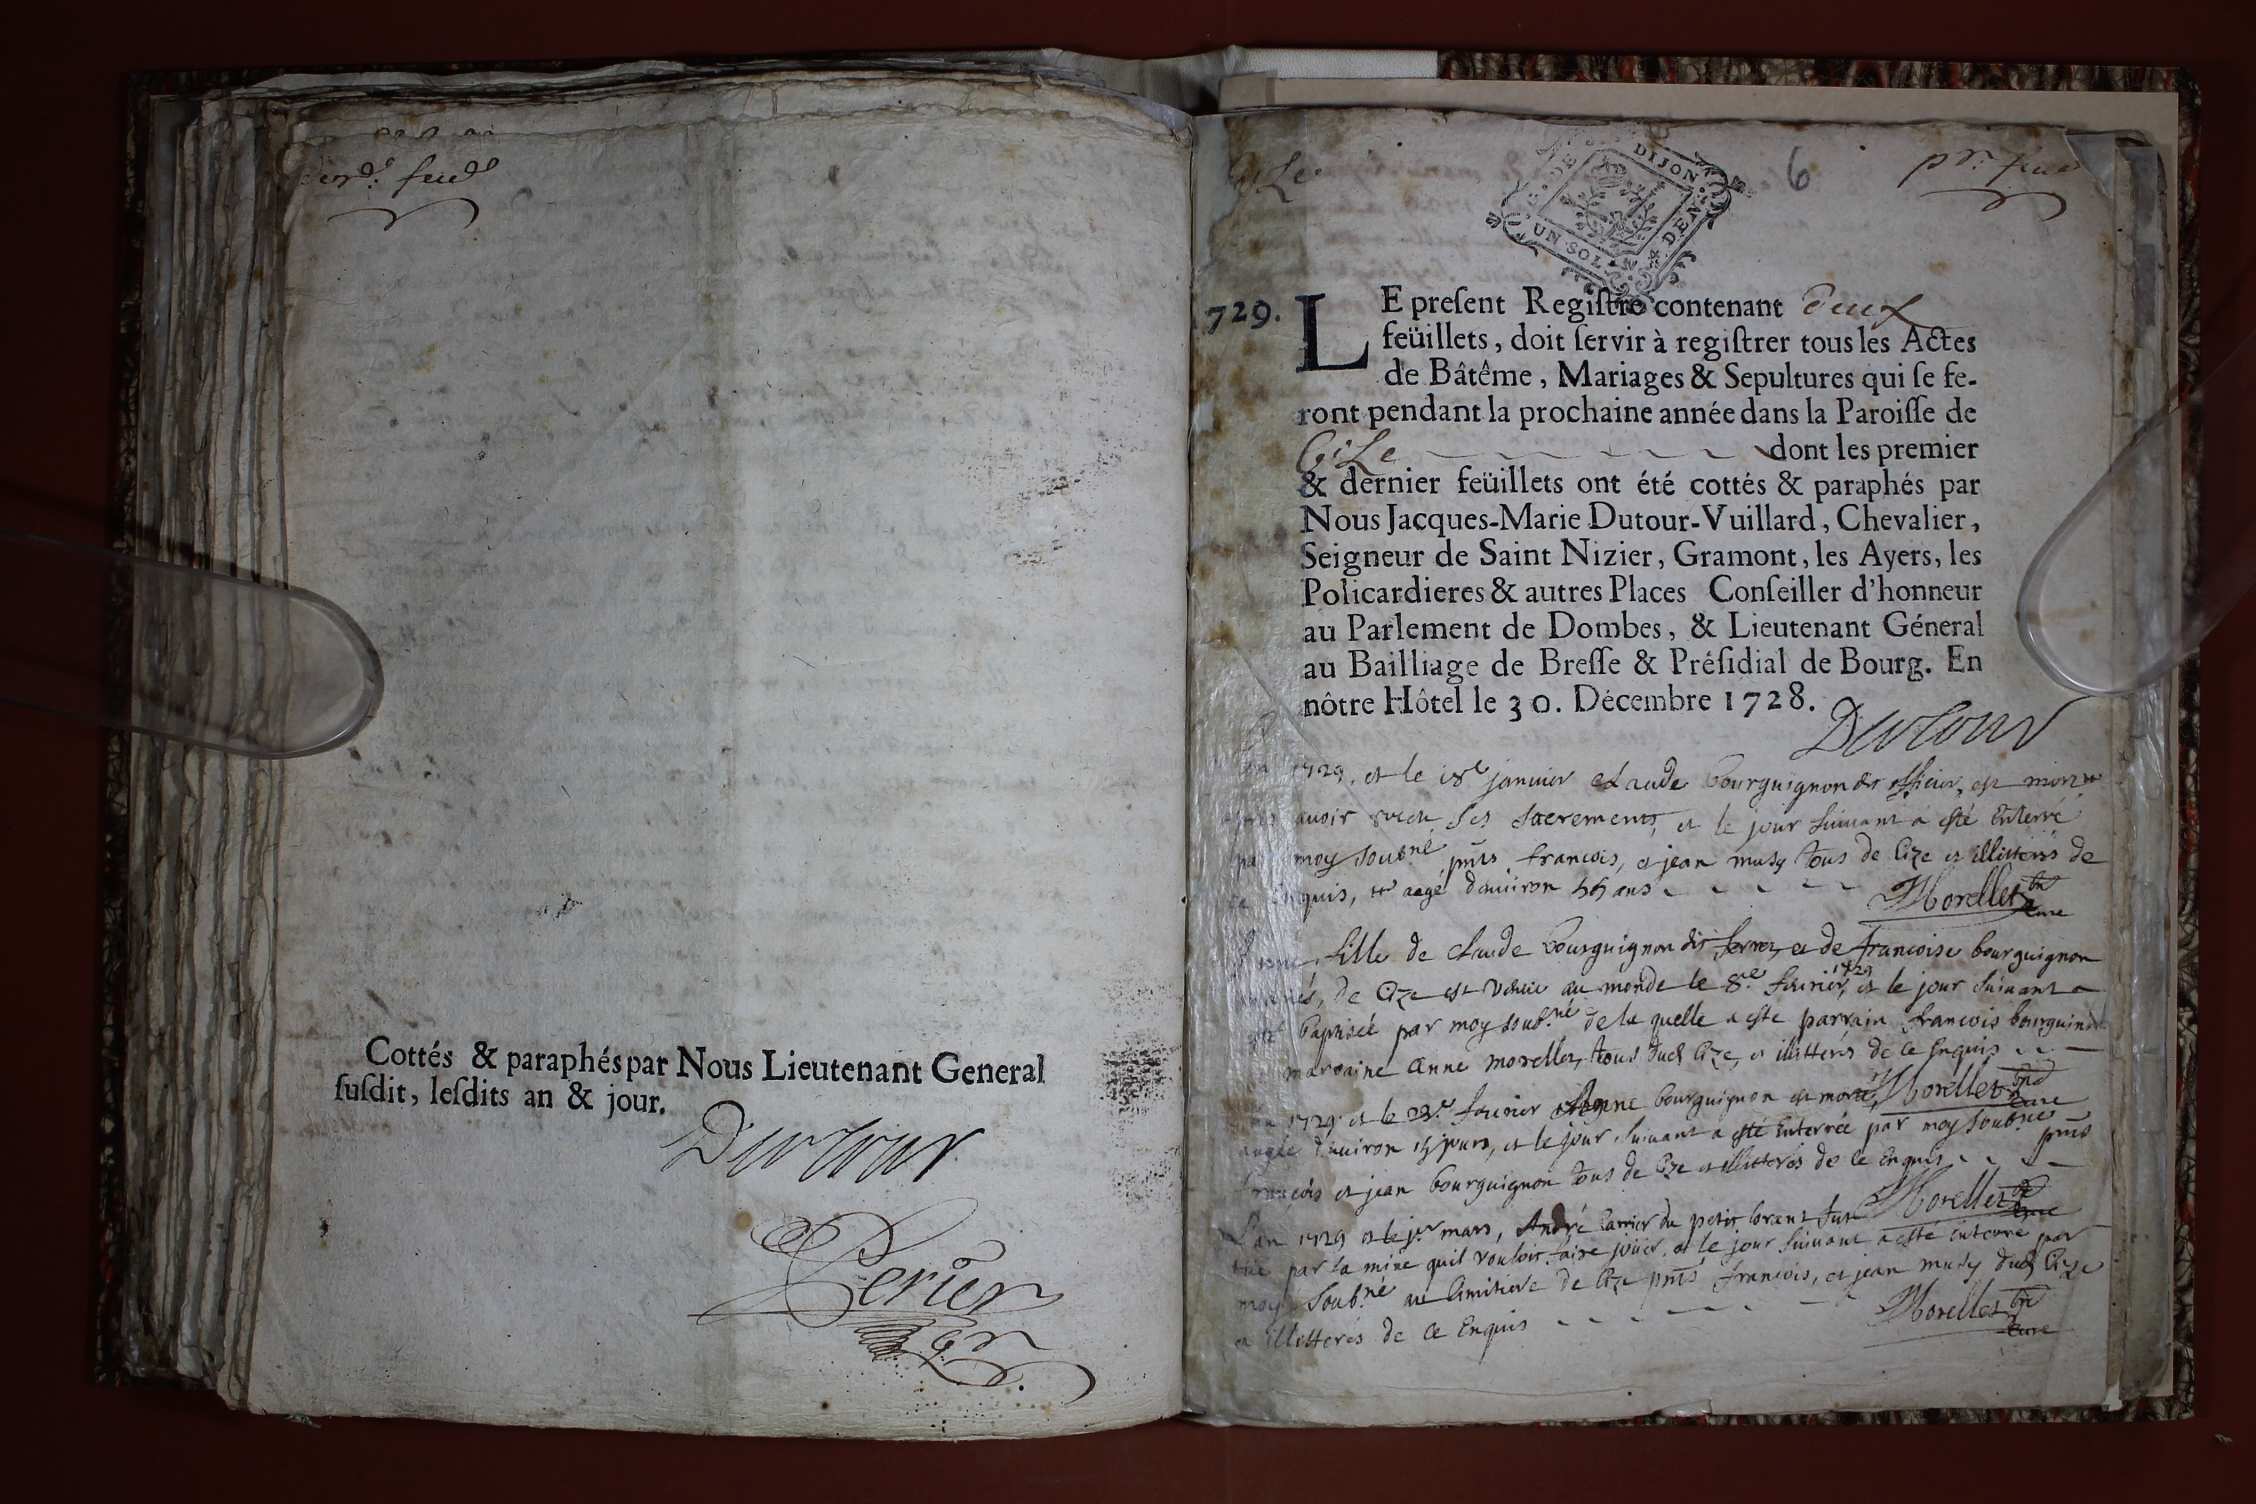 feud
Cottés & paraphés par Nous Lieutenant General
ſuſdit, leſdits an & jour.
Dutour
Perier
6
DE DIJON
UN SOL DEN
729.
LE preſent Regiſtre contenant deux
feüillets, doit ſervir à regiſtrer tous les Actes
de Bâtême, Mariages & Sepultures qui ſe fe-
ront pendant la prochaine année dans la Paroiſſe de
Cize dont les premier
& dernier feüillets ont été cottés & paraphés par
Nous Jacques-Marie Dutour-Vuillard, Chevalier,
Seigneur de Saint Nizier, Gramont, les Ayers, les
Policardieres & autres Places Conſeiller d'honneur
au Parlement de Dombes, & Lieutenant Géneral
au Bailliage de Breſſe & Préſidial de Bourg. En
nôtre Hôtel le 30. Décembre 1728.
Dutour
1729. et le 18e janvier Claude bourguignon dit officier, est mort
avoir receu ses sacrements, et le jour suivant a esté Enterré
moy soubné pnts francois, et jean musy tous de Cize et illitterés de
Enquis, aagé d'environ ans
Morellet
cure
fille de Claude bourguignon dit ferroz, et de francoise bourguignon
de Cize est venue au monde le 8e fevrier 1729, et le jour suivant a
baptisée par moy soubné de la quelle a esté parrain francois bourguinon
marraine Anne morellet, tous dud Cize, et illitterés de ce Enquis
Morellet
cure
1729 et le fevrier bourguignon est morte,
aagée d'environ 15 jours, et le jour suivant a esté Enterrée par moy soubné pnts
francois et jean bourguignon tous de Cize et illitterés de ce Enquis
Morellet
cure
L'an 1729 et le jer mars, André Carrier du petit corent fut
tué par la mine quil vouloit faire jouer, et le jour suivant a esté enterré par
moy soubné au Cimitiere de Cize pnts francois, et jean musy dud Cize
et illitterés de ce Enquis
Morellet
cure